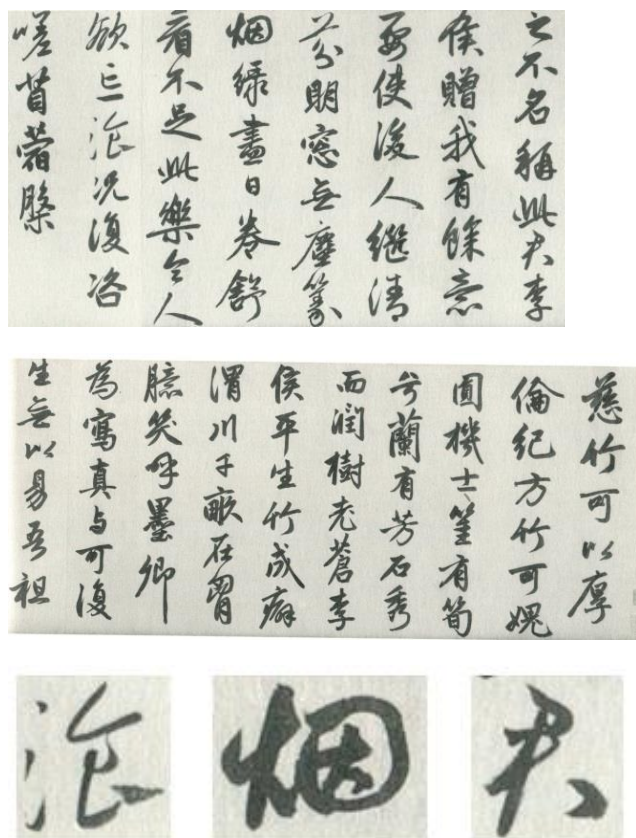 之不名稱此君李
侯贈我有餘意
要使後人繼清
芬明窓無塵篆
烟綠盡日卷舒
看不足此樂令人
欲忘湌況復咨
嗟苜蓿槃
慈竹可以厚
倫紀方竹可愧
圓機士篁有筍
兮蘭有芳石秀
而潤樹老蒼李
侯平生竹成癖
渭川千畝在胷
臆笑呼墨卿
為寫真与可復
生無以易吾祖
湌 烟 君